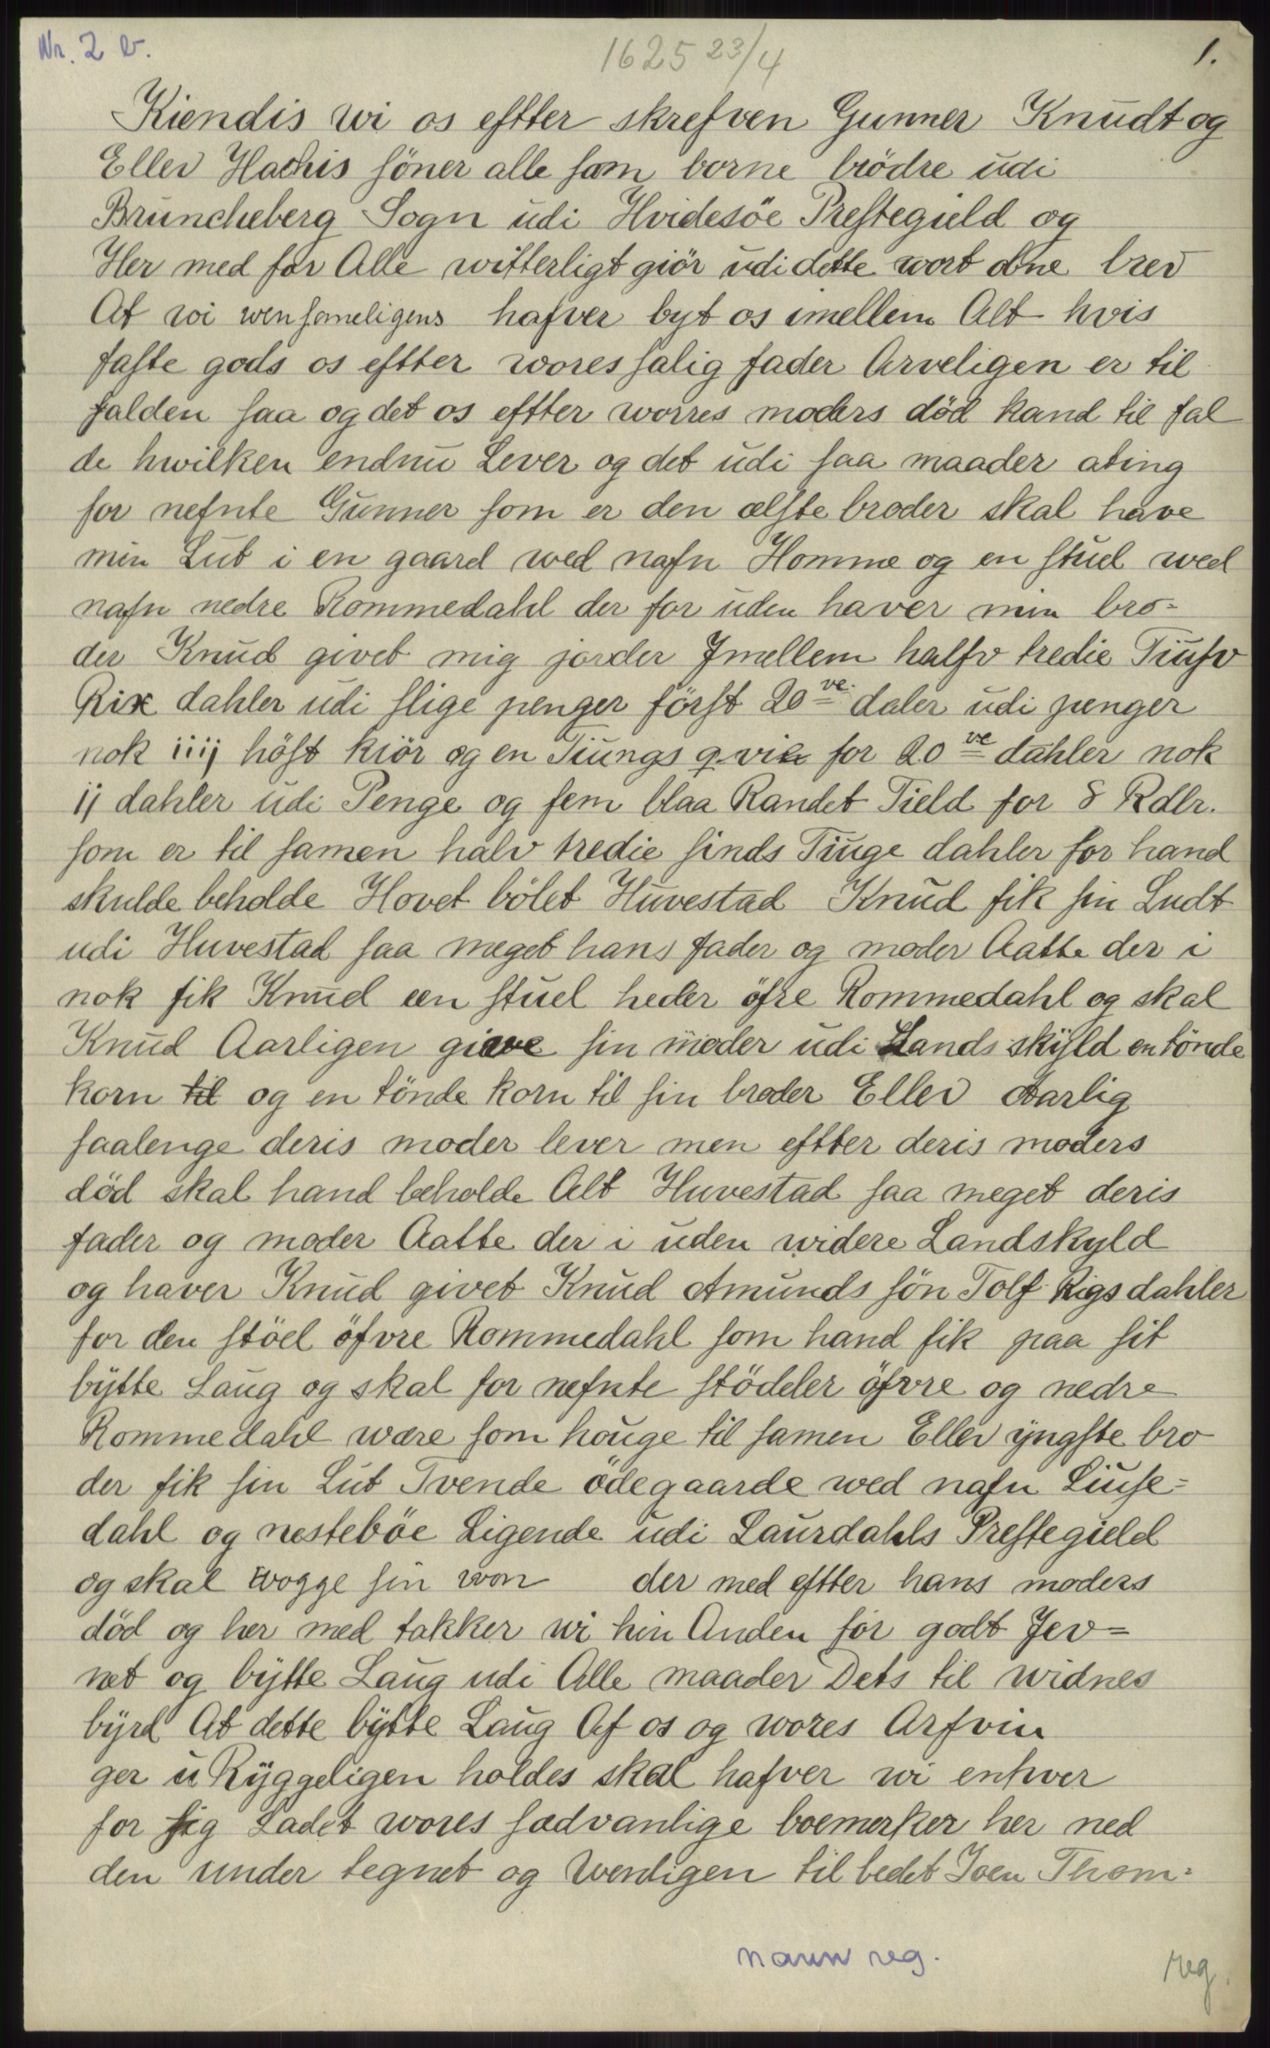 Nr. 2 b.
1625 23/4
1.
Kiendis wi os eftter skrefven Gunner Knudt og
Ellev Hachis söner alle som borne brödre udi
Bruncheberg Sogn udi Hvidesöe Prestegield og
Her med for Alle witterligt giör udi dette wort obne brev
At wi wensameligens hafver byt os imellem Alt hvis
faste gods os eftter wores salig fader Arveligen er til
falden saa og det os eftter worres moders död kand til fal
de hwilken endnu Lever og det udi saa maader ating
for nefnte Gunner som er den ælste broder skal have
min Lut i en gaard wed nafn Homme og en stuel wed
nafn nedre Rommedahl der for uden haver min bro-
der Knud givet mig jorder Jmellem halfv tredie Tiufv
Rix dahler udi slige penger först 20ve daler udi penger
nok iiij höst kiör og en Tiungs qvie for 20ve dahler nok
ij dahler udi Penge og fem blaa Randet Tield for 8 Rdlr.
som er til samen halv tredie sinds Tiuge dahler for hand
skulde beholde Hovet bölet Huvestad Knud fik sin Ludt
udi Huvestad saa meget hans fader og moder Aatte der i
nok fik Knud een stuel heder öfre Rommedahl og skal
Knud Aarligen give sin moder udi Lands skÿld en tönde
korn til og en tönde korn til sin broder Ellev Aarlig
saalenge deris moder lever men eftter deris moders
död skal hand beholde Alt Huvestad saa meget deris
fader og moder Aatte der i uden widere Landskyld
og haver Knud givet Knud Amunds sön Tolf Rigs dahler
for den stöel öfvre Rommedahl som hand fik paa sit
bÿtte Laug og skal for nefnte stödeler öfvre og nedre
Rommedahl wære som houge til samen Ellev ÿngste bro
der fik sin Lut Tvende ödegaarde wed nafn Liuse-
dahl og nesteböe Ligende udi Laurdahls Prestegield
og skal wogge sin won der med eftter hans moders
död og her med takker wi hin Anden for godt Jev-
net og bÿtte Laug udi Alle maader Dets til widnes
bÿrd At dette bÿtte Laug Af os og wores Arfvin
ger u Rÿggeligen holdes skal hafver wi enhver
for sig Ladet wores sædvanlige boemerker her ned
den under tegnet og Wenligen til bedet Joen Thom-
navn reg.
reg.